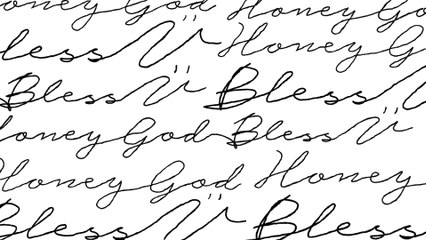 Honey God Honey God
less Ü Honey G
Bless Ü Bless
oney God Bless Ü
Honey God Honey
Bless Ü Bless